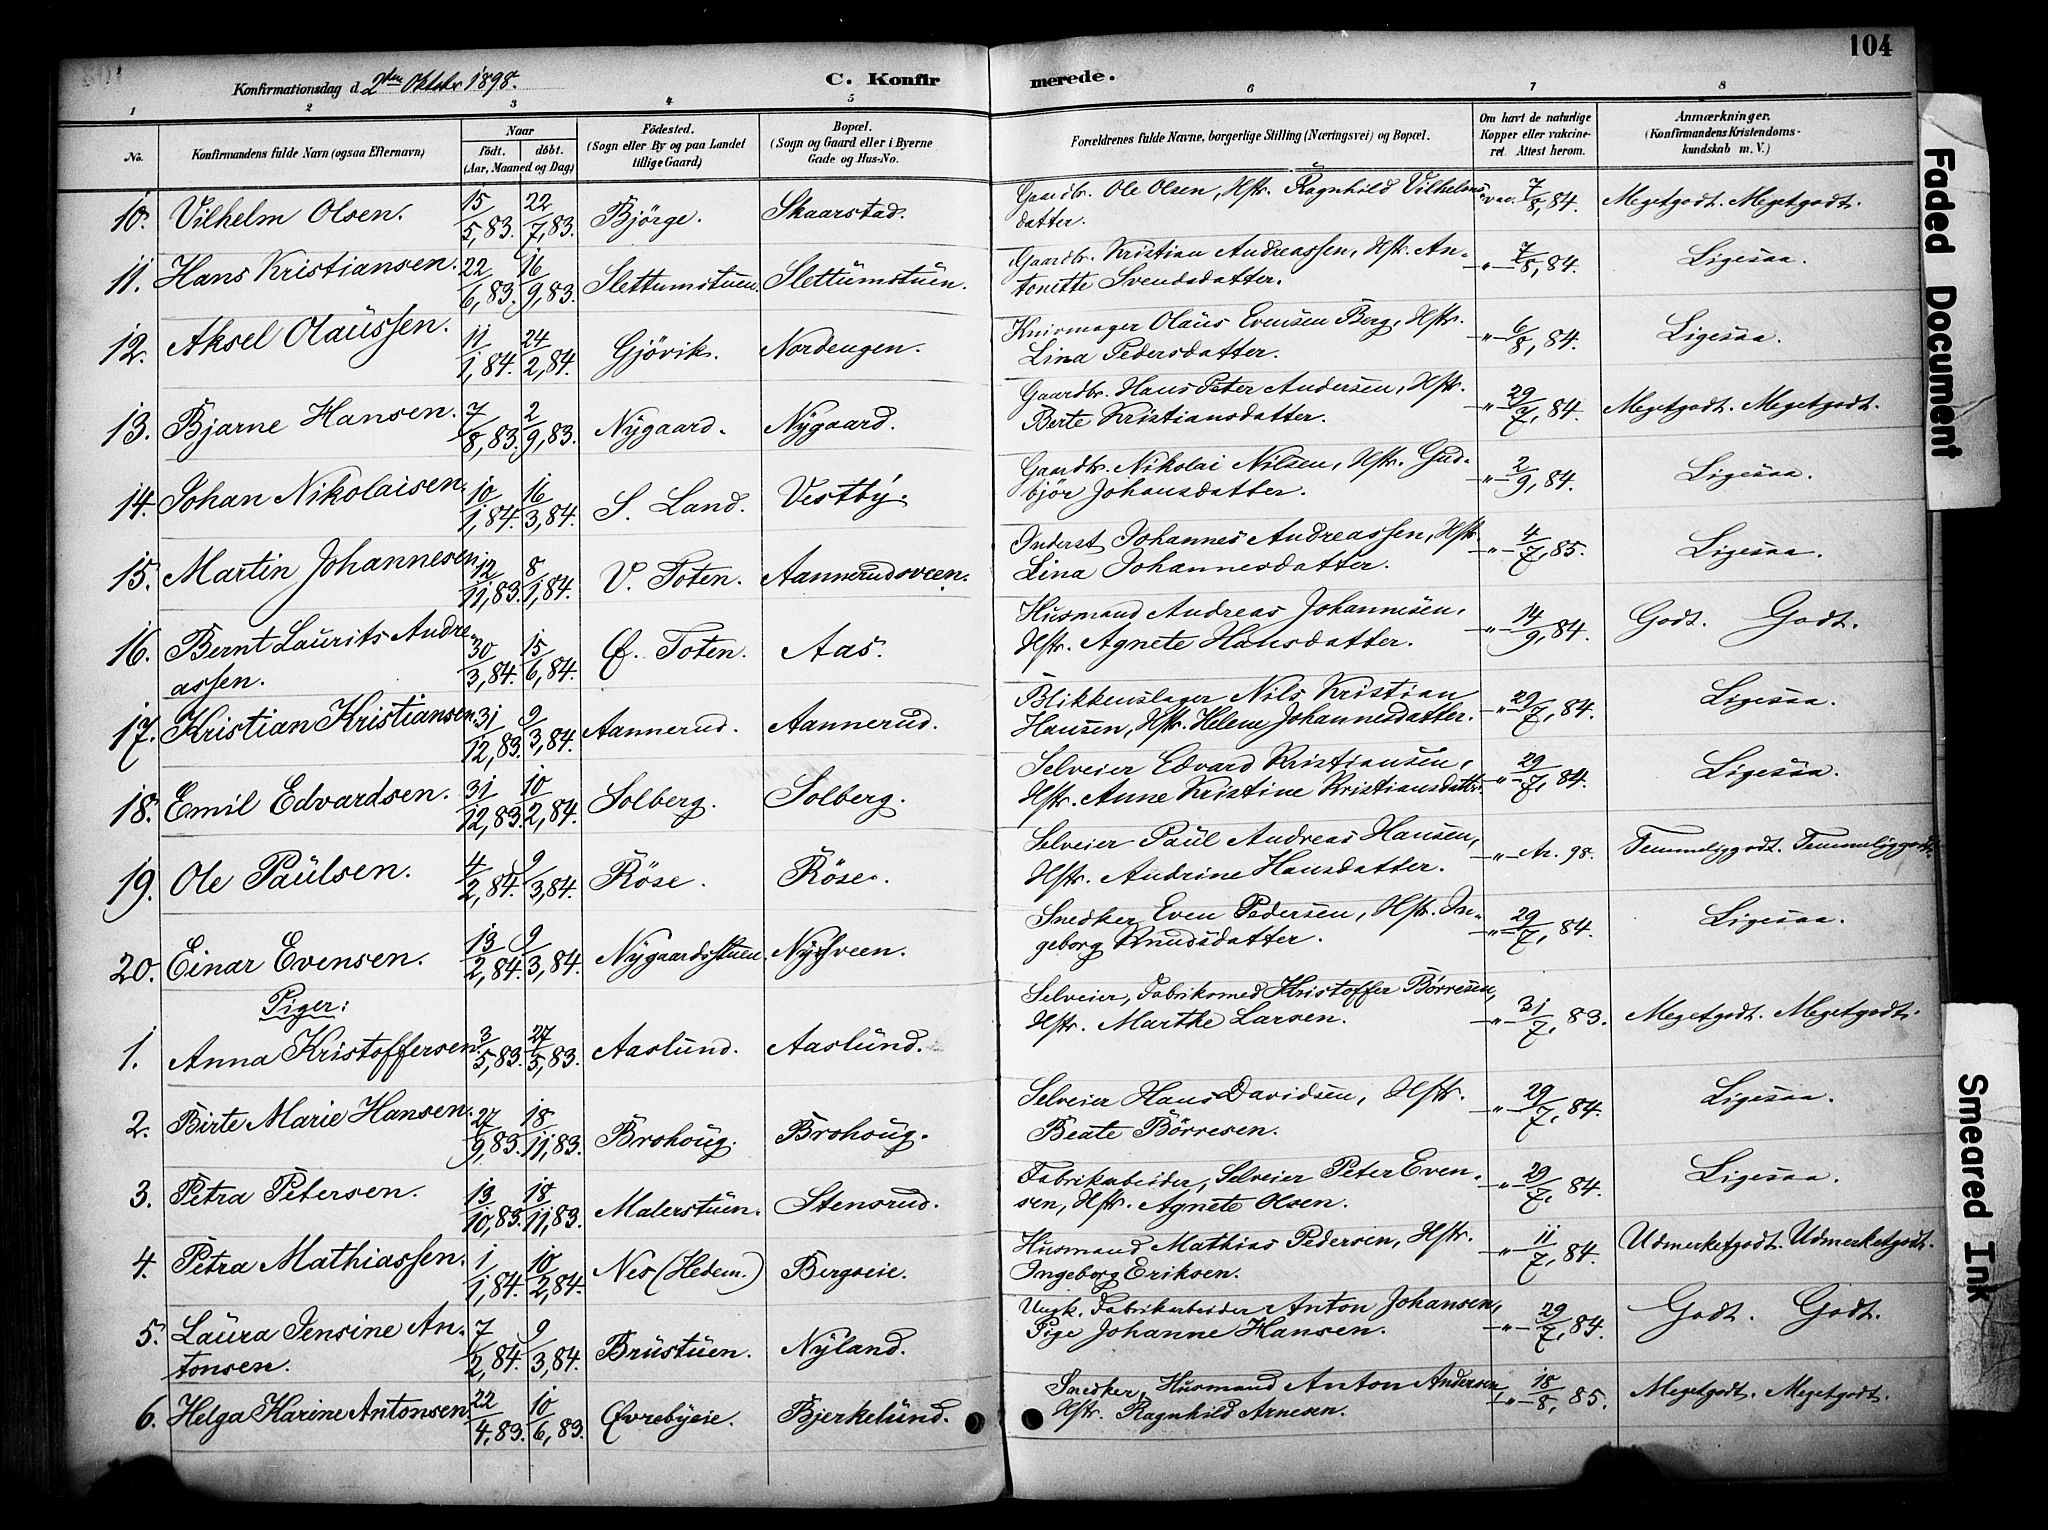 104
Konfirmationsdag d. 2den Oktober 1898.
C. Konfir merede.
1 2 3 4 5 6 7 8
No. Konfirmandens fulde Navn (ogsaa Efternavn) Naar födt. döbt. (Aar, Maaned og Dag) Födested. (Sogn eller By og paa Landet tillige Gaard) Bopæl. (Sogn og Gaard eller i Byerne Gade og Hus-No. Forældrenes fulde Navne, borgerlige Stilling (Næringsvei) og Bopæl. Om havt de naturlige Kopper eller vakcineret. Attest herom. Anmærkninger. (Konfirmandens Kristendomskundskab m. V.)
10. Vilhelm Olsen. 15/5, 83. 22/7, 83. Bjørge. Skaarstad. Gaardbr. Ole Olsen, Hstr. Ragnhild Vilhelms- vac. 7/8, 84. Megetgodt. Megetgodt.
datter.
11. Hans Kristiansen. 22/6, 83. 16/9, 83. Slettumstuen. Slettumstuen. Gaardbr. Kristian Andreassen, Hstr. An- -"- 7/8, 84. Ligesaa.
tonette Svendsdatter.
12. Aksel Olaussen. 11/1, 84. 24/2, 84. Gjövik. Nordengen. Knivmager Olaus Evensen Berg, Hstr. -"- 6/8, 84. Ligesaa.
Lina Pedersdatter.
13. Bjarne Hansen. 7/8, 83. 2/9, 83. Nygaard. Nygaard. Gaardbr. Hans Peter Andersen, Hstr. -"- 29/7, 84. Megetgodt. Megetgodt.
Berte Kristiansdatter.
14. Johan Nikolaisen. 10/1, 84. 16/3, 84. S. Land. Vestby. Gaardbr. Nikolai Nilsen, Hstr. Gud- -"- 2/9, 84. Ligesaa.
björ Johansdatter.
15. Martin Johannesen. 12/11, 83. 8/1, 84. V. Toten. Aannerudsveen. Inderst Johannes Andreassen, Hstr. -"- 4/7, 85. Ligesaa.
Lina Johannesdatter.
16. Bernt Laurits Andre- 30/3, 84. 15/6, 84. Ø. Toten. Aas. Husmand Andreas Johannesen, -"- 14/9, 84. Godt. Godt.
assen. Hstr. Agnete Hansdatter.
17. Kristian Kristiansen. 31/12, 83. 9/3, 84. Aannerud. Aannerud. Blikkenslager Nils Kristian -"- 29/7, 84. Ligesaa.
Hansen, Hstr. Helene Johannesdatter.
18. Emil Edvardsen. 31/12, 83. 10/2, 84. Solberg. Solberg. Selveier Edvard Kristiansen, -"- 29/7, 84. Ligesaa.
Hstr. Anne Kristine Kristiansdatter.
19. Ole Paulsen. 4/2, 84. 9/3, 84. Röse. Röse. Selveier Paul Andreas Hansen, -"- Ar. 98. Temmeliggodt. Temmeliggodt.
Hstr. Andrine Hansdatter.
20. Einar Evensen. 13/2, 84. 9/3, 84. Nygaardsstuen. Nyhveen. Snedker Even Pedersen, Hstr. In- -"- 29/7, 84. Ligesaa.
geborg Knudsdatter.
Piger:
1. Anna Kristoffersen. 3/5, 83. 27/5, 83. Aaslund. Aaslund. Selveier, Fabriksmed Kristoffer Börresen, -"- 31/7, 83. Megetgodt. Megetgodt.
Hstr. Marthe Larsen.
2. Birte Marie Hansen. 27/9, 83. 18/11, 83. Brohoug. Brohoug. Selveier Hans Davidsen, Hstr. -"- 29/7, 84. Ligesaa.
Beate Börresen.
3. Petra Petersen. 13/10, 83. 18/11, 83. Malerstuen. Stensrud. Fabrikarbeider, Selveier Peter Even- -"- 29/7, 84. Ligesaa.
sen, Hstr. Agnete Olsen.
4. Petra Mathiassen. 1/1, 84. 10/2, 84. Nes (Hedem.) Bergseie. Husmand Mathias Pedersen, Hstr. -"- 11/7, 84. Udmerketgodt. Udmerketgodt.
Ingeborg Eriksen.
5. Laura Jensine An- 7/2, 84. 9/3, 84. Brustuen. Nyland. Ungk. Fabrikarbeider Anton Johansen, -"- 29/7, 84. Godt. Godt.
tonsen. Pige Johanne Hansen.
6. Helga Karine Antonsen 22/4, 83. 10/6, 83. Øvrebyeie. Bjerkelund. Snedker, Husmand Anton Andersen, -"- 18/8, 85. Megetgodt. Megetgodt.
Hstr. Ragnhild Arnesen.
Faded Document
Smeared Ink